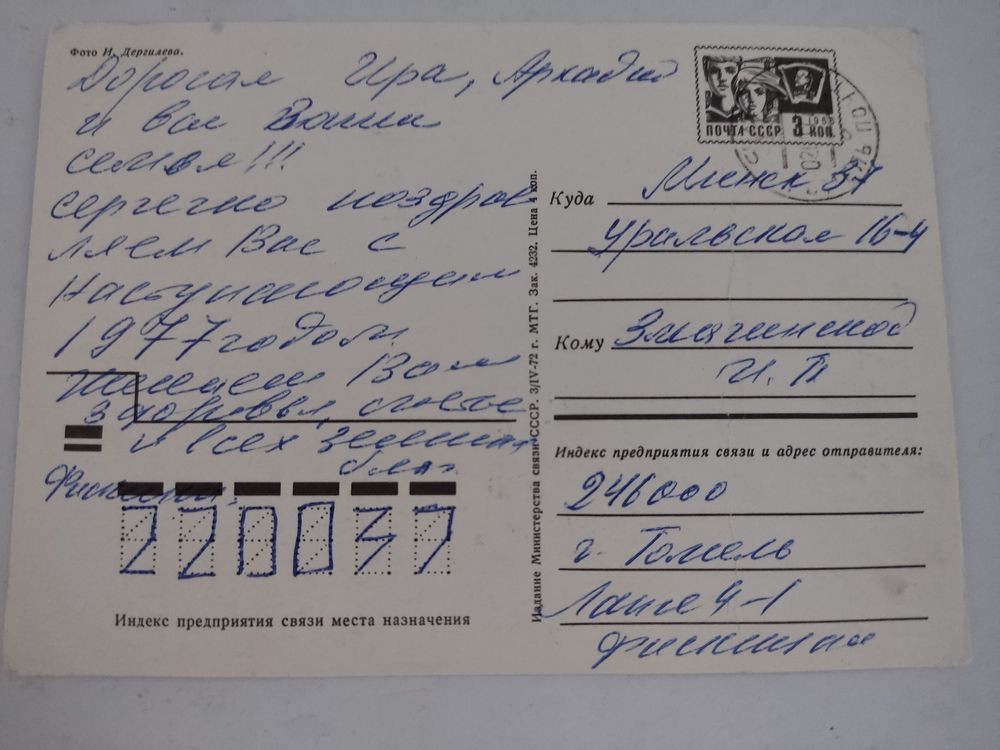 Фото И. Дергилева.
Дорогая Ира, Аркадий
и вся Ваша
семья!!!
сердечно поздрав
ляем Вас с
Наступающим
1977 годом.
Желаем Вам
здоровья, счастья
и всех земных
благ.
Фискины.
220037
Индекс предприятия связи места назначения
Издание Министерства связи СССР. 3/IV-72 г. МТГ. Зак. 4232. Цена 4 коп.
1966
ПОЧТА СССР 3 КОП
Куда Минск 37
Уральская 16-4
Кому
И. П
Индекс предприятия связи и адрес отправителя:
246000
г. Гомель
Ланге 4-1